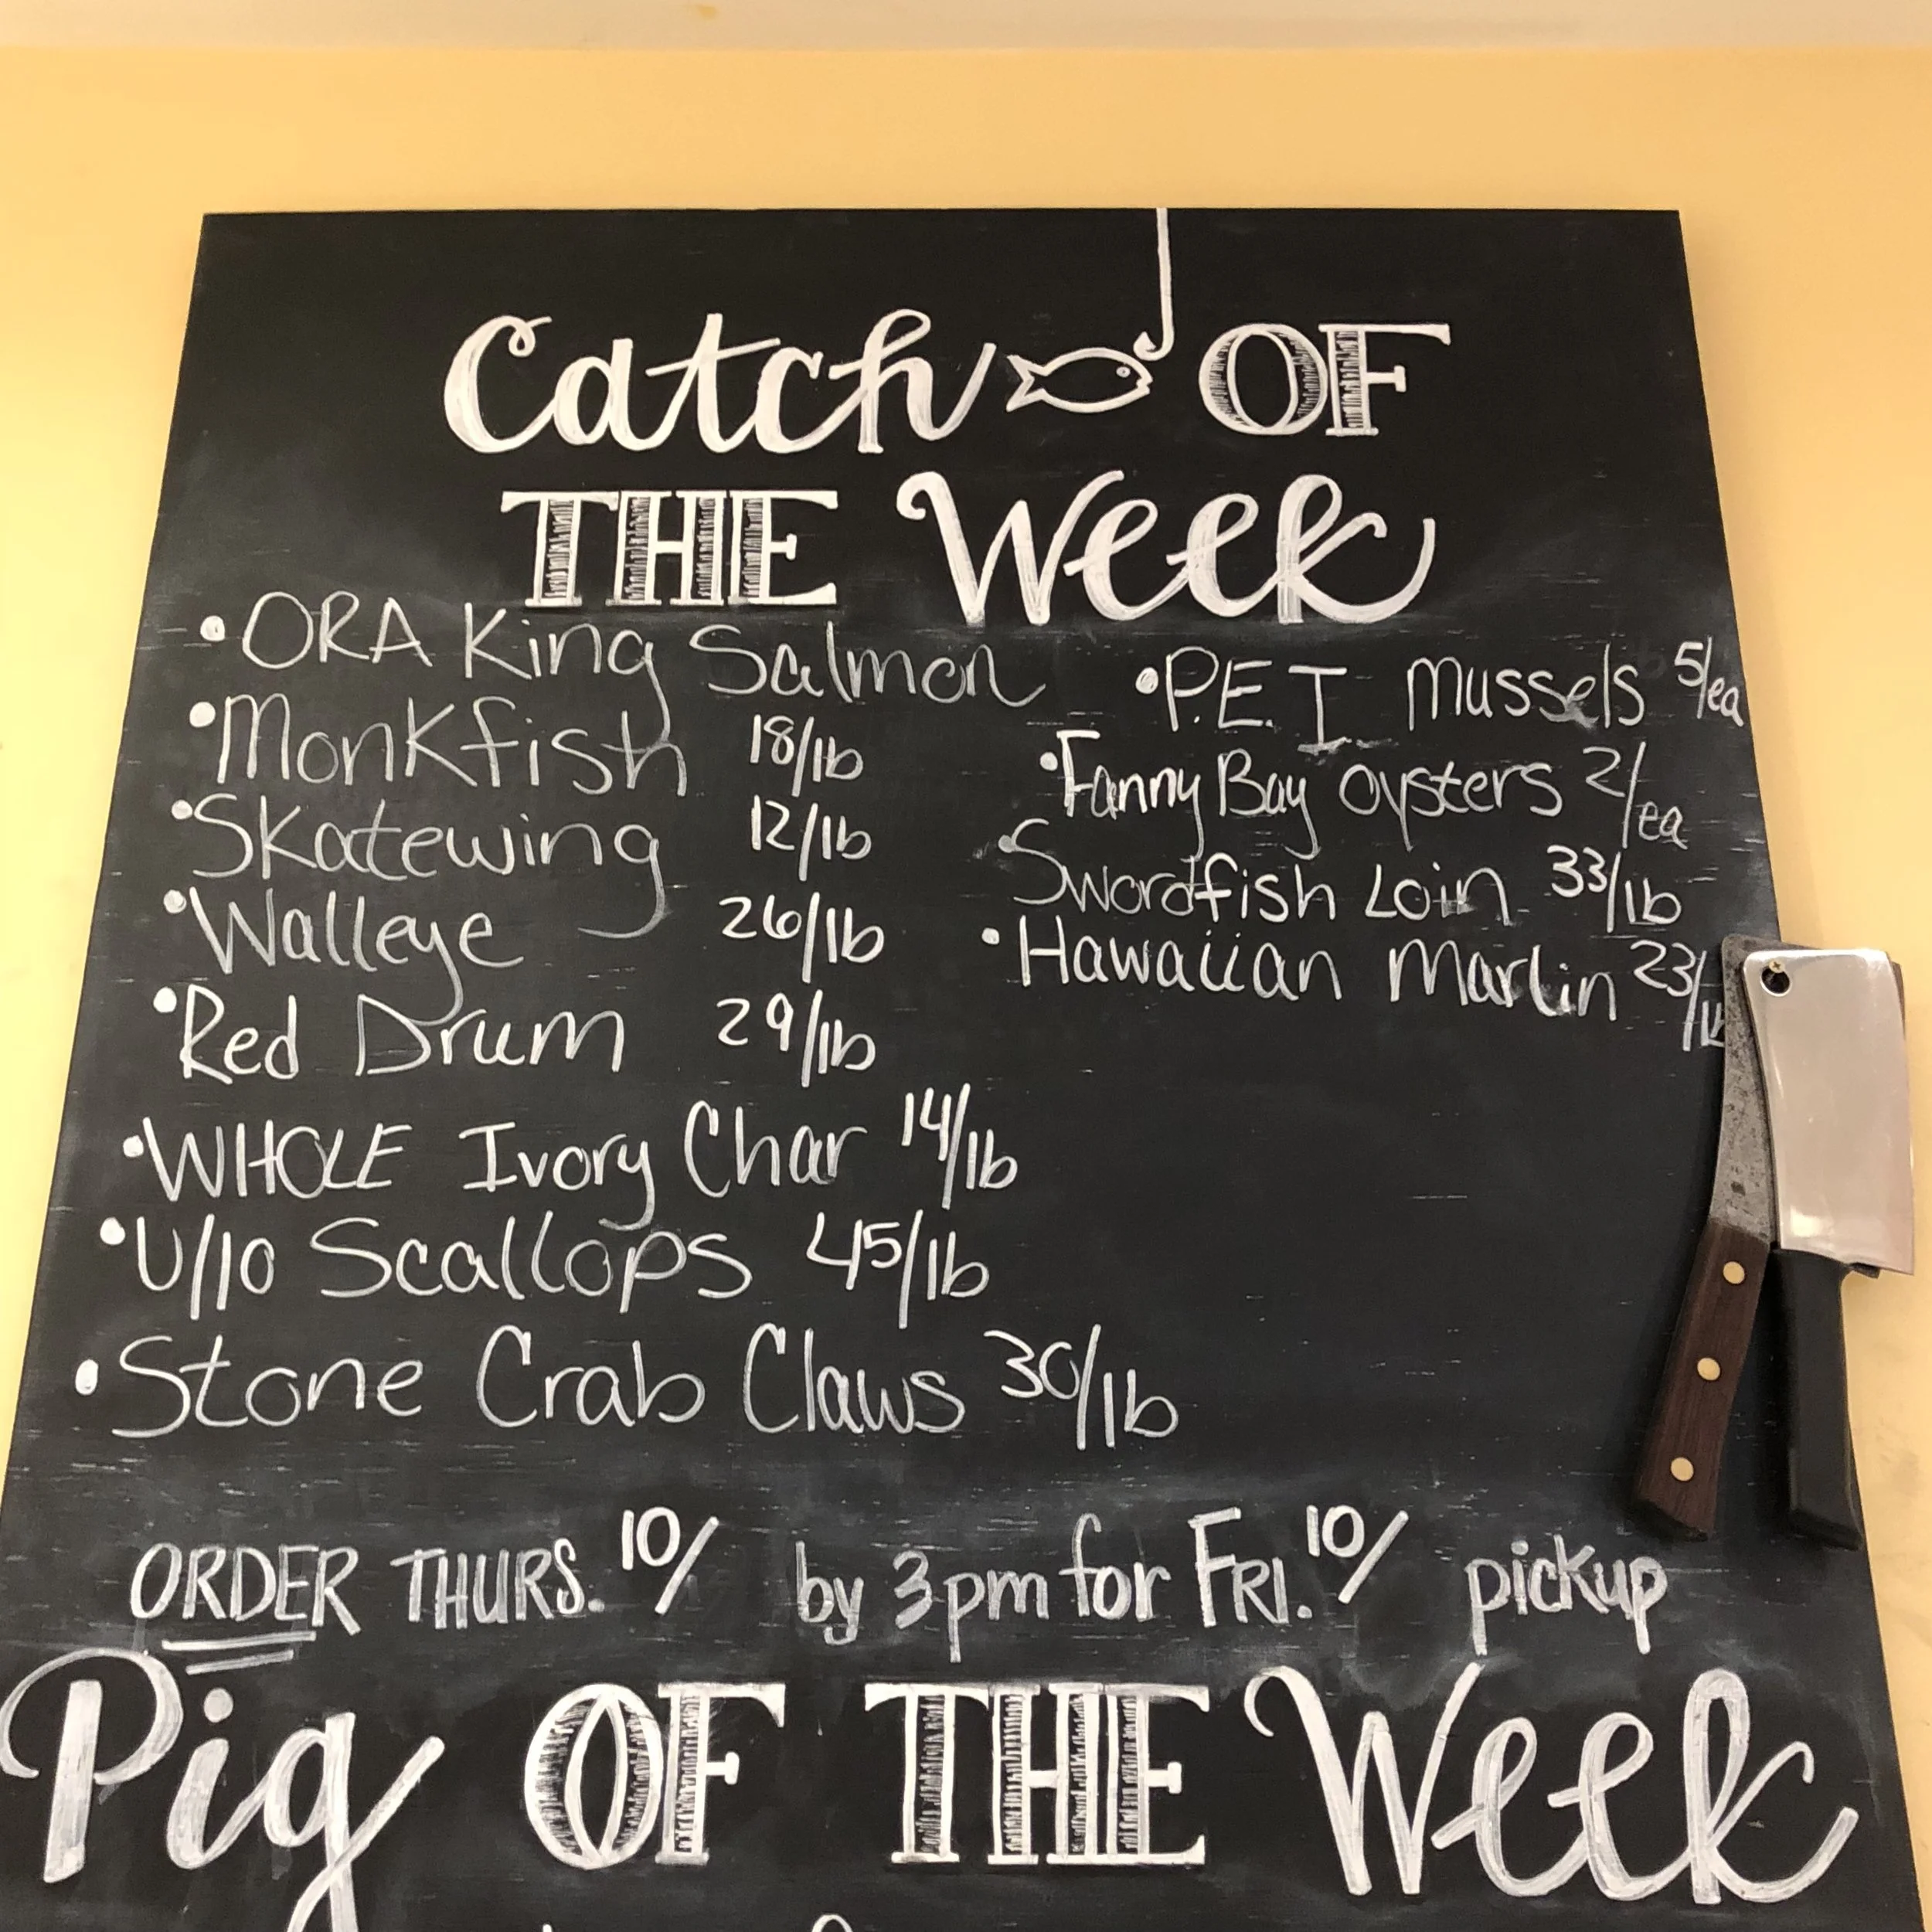 Catch OF
THE Week
• ORA King Salmon
• Monkfish 18/lb
• Skatewing 12/lb
• Walleye 26/lb
• Red Drum 29/lb
• WHOLE Ivory Char 14/lb
• U/10 Scallops 45/lb
• Stone Crab Claws 30/lb
• P.E.I. Mussels 5/ea
• Fanny Bay Oysters 2/ea
• Swordfish Loin 33/lb
• Hawaiian Marlin 23/lb
ORDER THURS. 10/ by 3pm for FRI. 10/ pickup
Pig OF THE Week